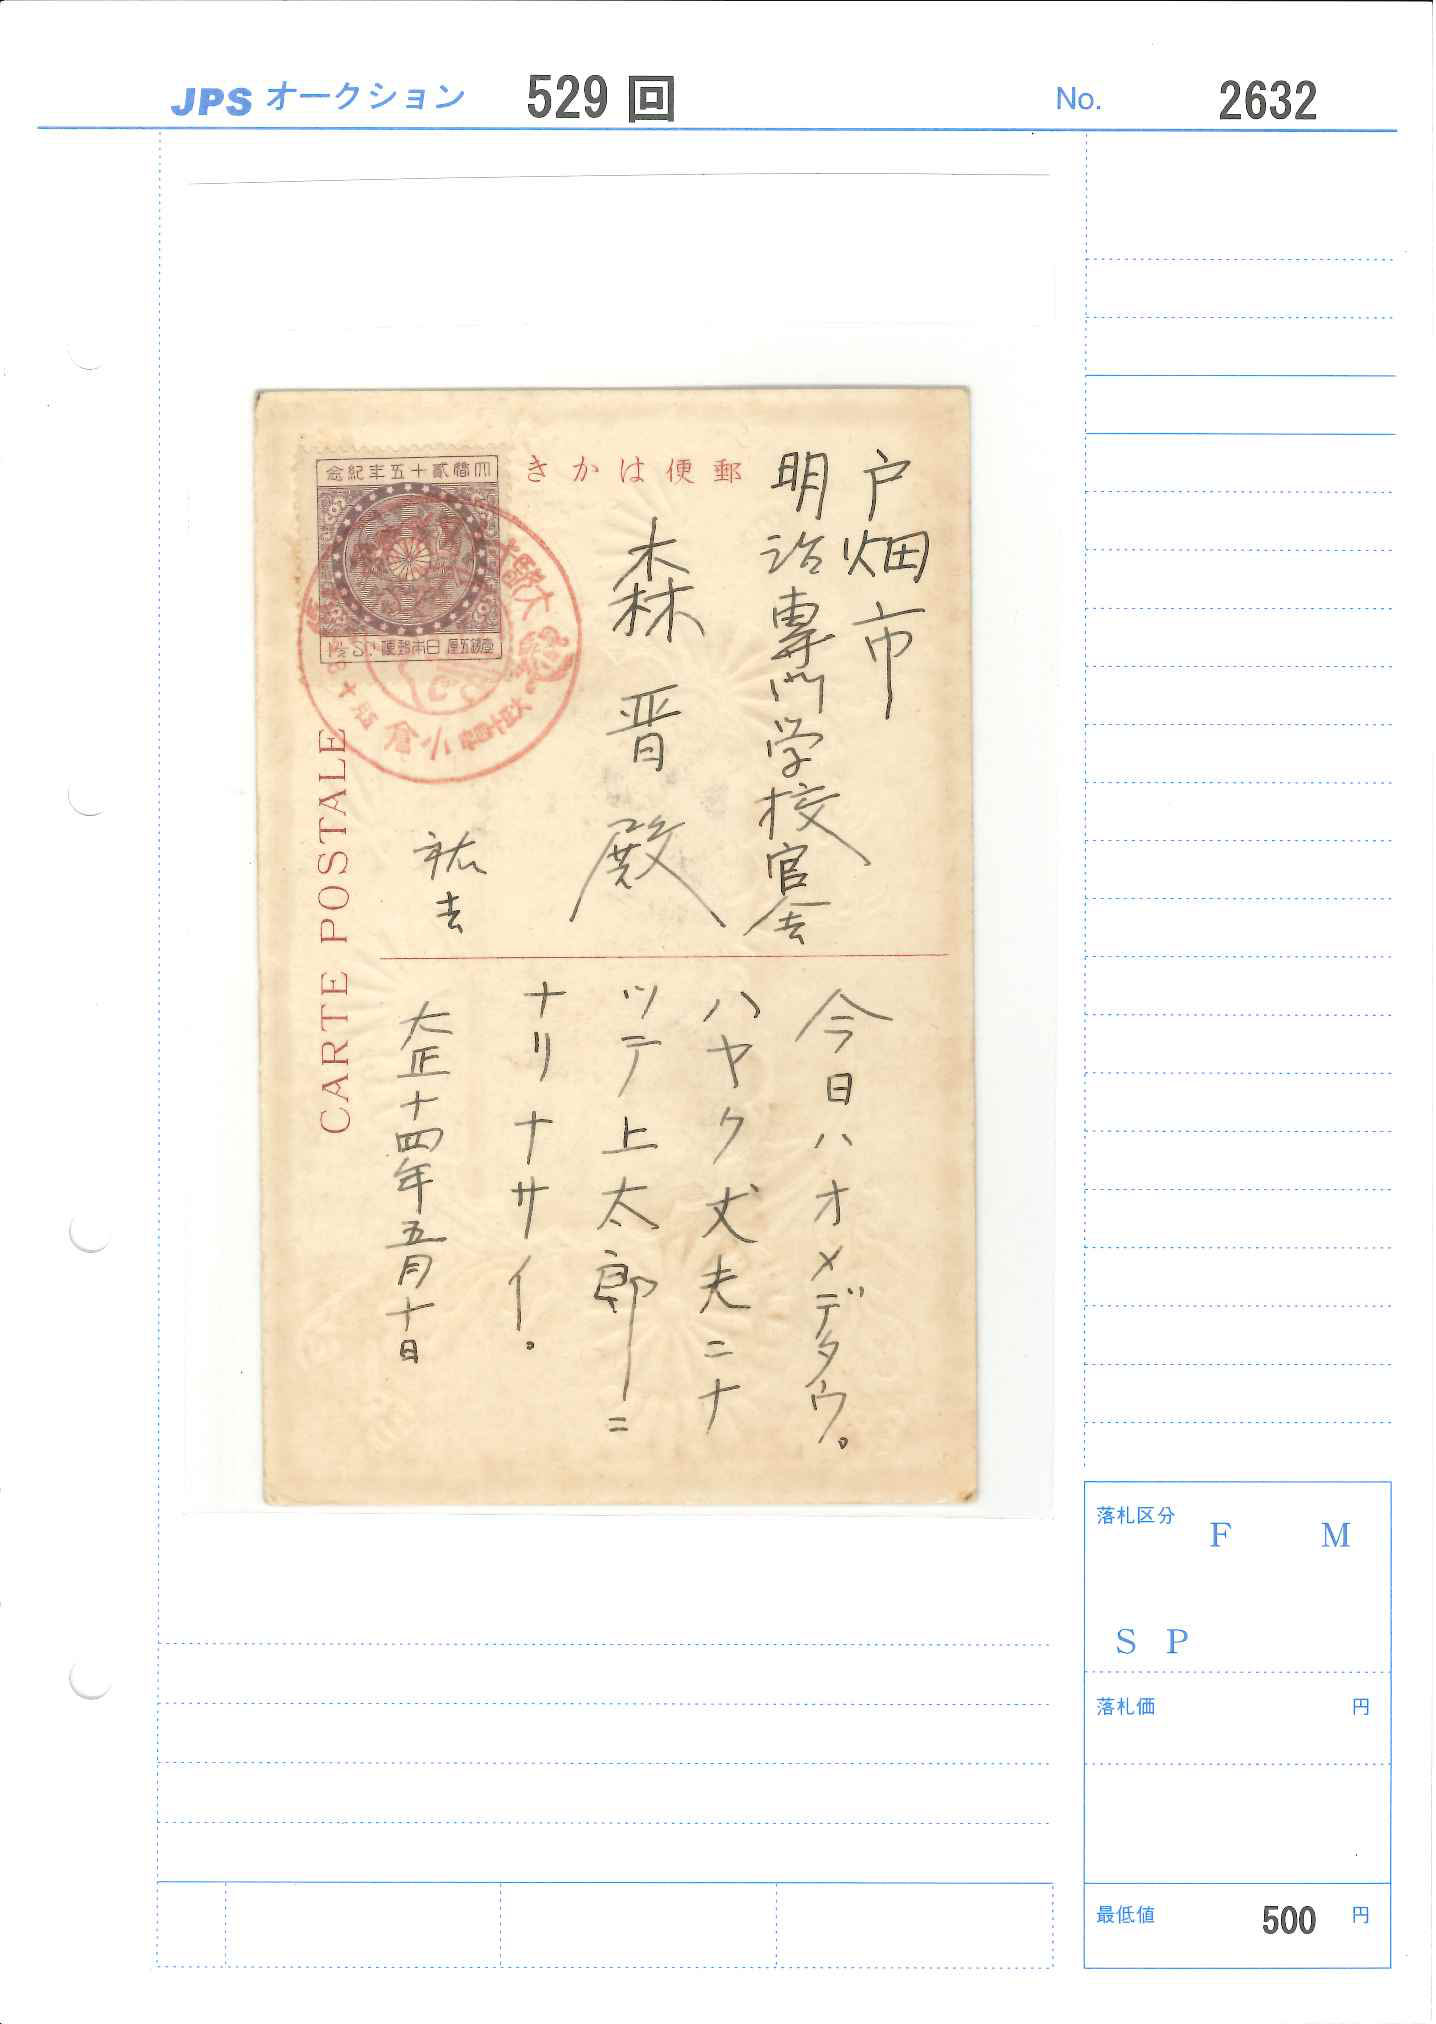 JPS オークション 529 回 No. 2632
念紀年五十貳婚大
1½ Sn. 便郵本日 厘五錢壹
きかは便郵
大婚
大正十四年
小倉
CARTE POSTALE
戸畑市
明治専門学校官舎
森晋殿
祐吉
今日ハオメデタウ。
ハヤク丈夫ニナ
ツテ上太郎ニ
ナリナサイ。
大正十四年五月十日
落札区分 F M
S P
落札価 円
最低値 500 円